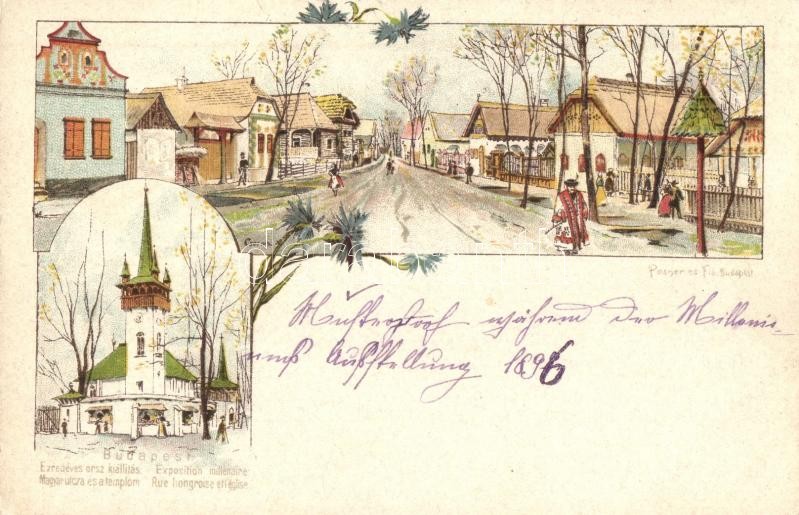 Posner és Fia, Budapest
Musterdorf während der Millenni-
ums Ausstellung 1896
Budapest
Ezredéves orsz. kiállítás. Exposition millénaire:
Magyar utcza és a templom Rue hongroise et l'église